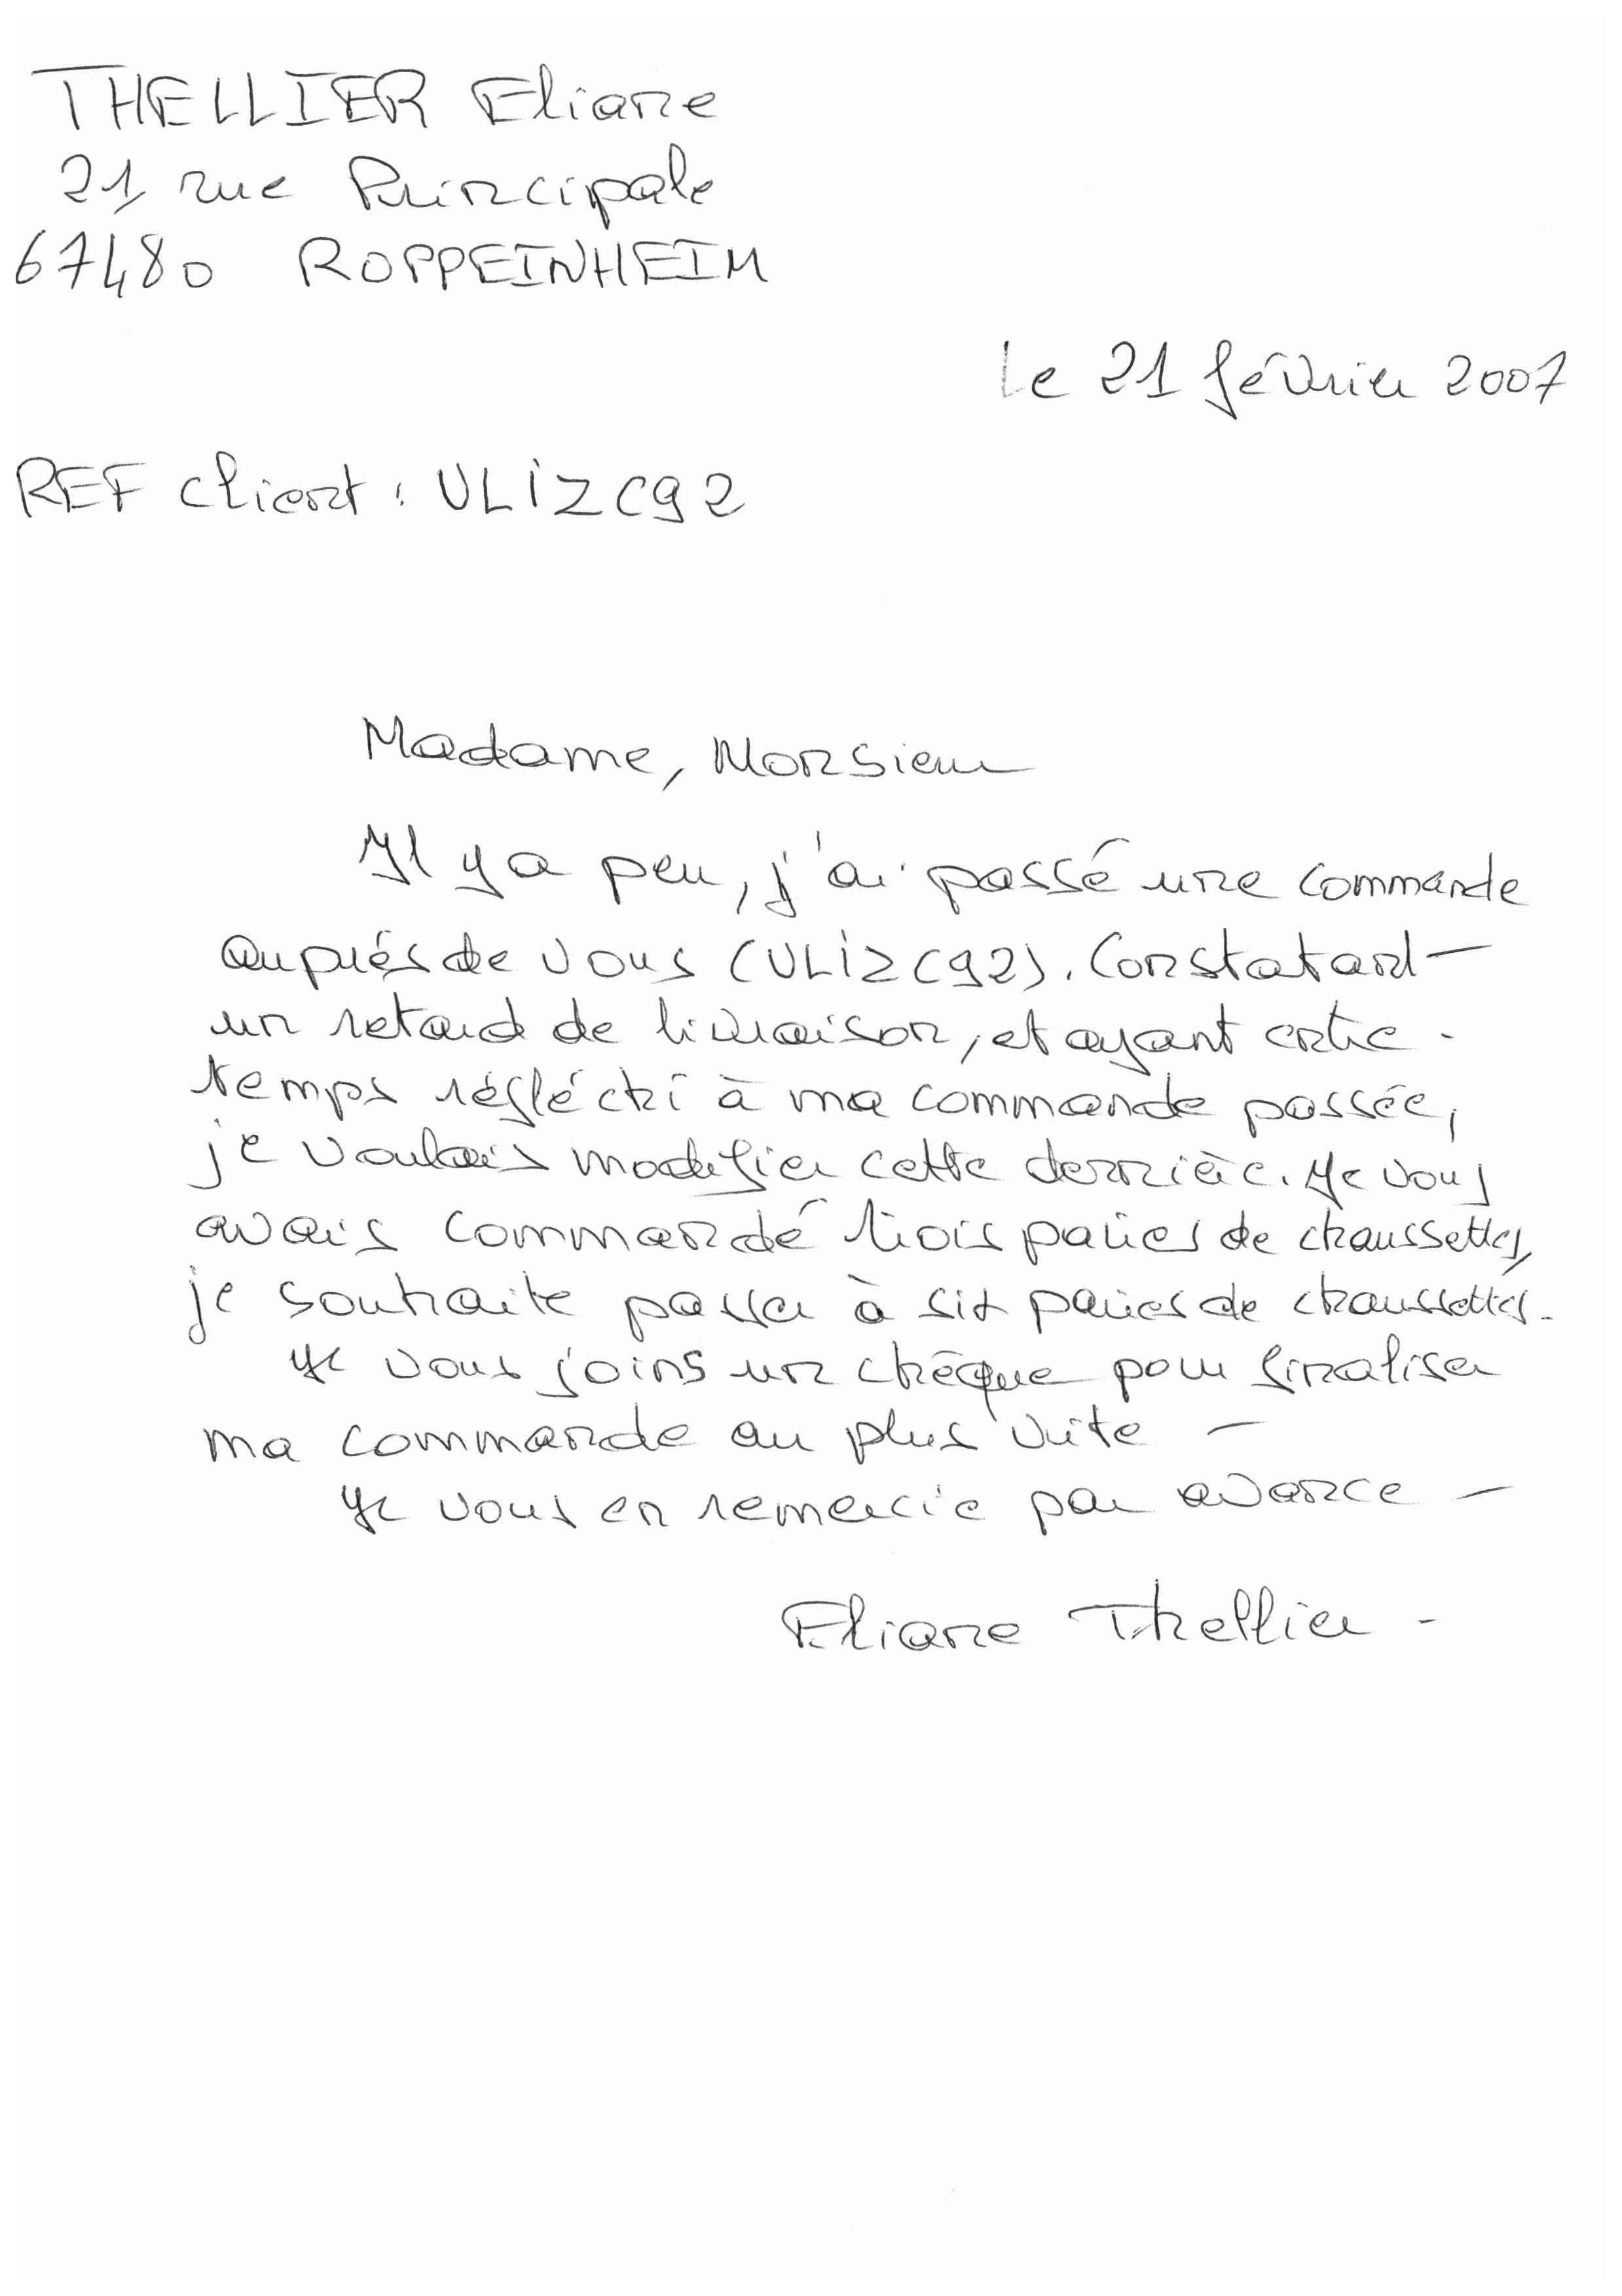 THELLIER Eliane
21 rue Principale
67480 ROPPEINHEIM
Le 21 février 2007
REF client : ULIZC92
Madame, Monsieur
Il y a peu, j'ai passé une commande
auprés de vous (ULIZC92). Constatant
un retard de livraison, et ayant entre-
temps réfléchi à ma commande passée,
je voulais modifier cette dernière. Je vous
avais commandé trois paires de chaussettes,
je souhaite passer à six paires de chaussettes.
Je vous joins un chèque pour finaliser
ma commande au plus vite -
Je vous en remercie par avance -
Eliane Thellier -